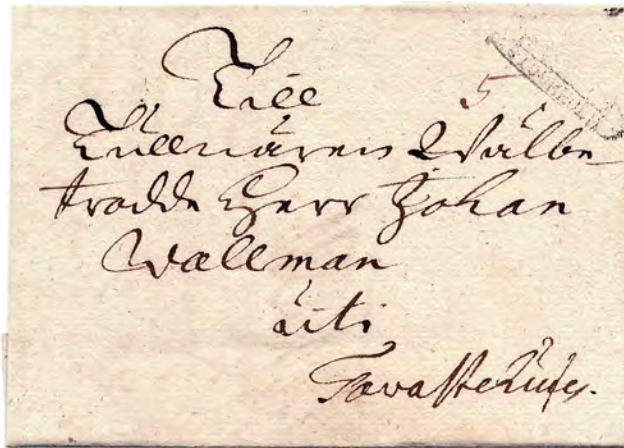 Till
5
STOCKHOLM
Tullnären Wälbe-
trodde Herr Johan
Wallman
uti
Tavastehus.